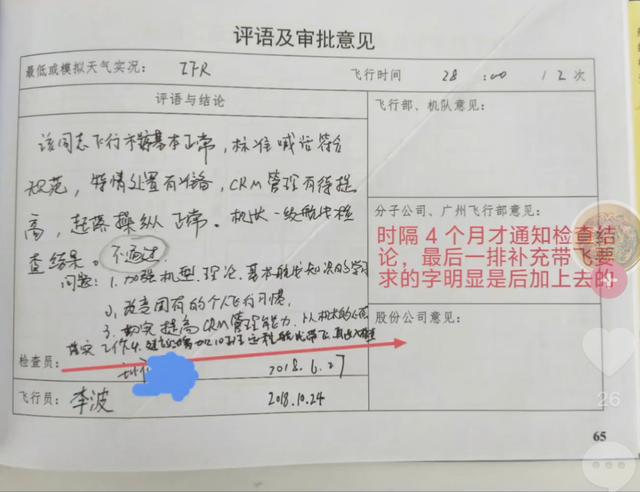 评语及审批意见
最低或模拟天气实况： IFR 飞行时间 28 : 00 12次
评语与结论
飞行部、机队意见：
该同志飞行术基本正常，标准喊话符合
规范，特情处置有准备，CRM管理有待提
高，起降操纵正常。机长一级航线检
查结果。不通过
问题：1.加强机型、理论、基本航线知识的学习
2.改变固有的个人飞行习惯。
3.切实提高CRM管理能力，以机长的
落实工作
分子公司、广州飞行部意见：
时隔 4 个月才通知检查结
论，最后一排补充带飞要
求的字明显是后加上去的
股份公司意见：
检查员： 2018.6.27
飞行员： 李波 2018.10.24
65
26